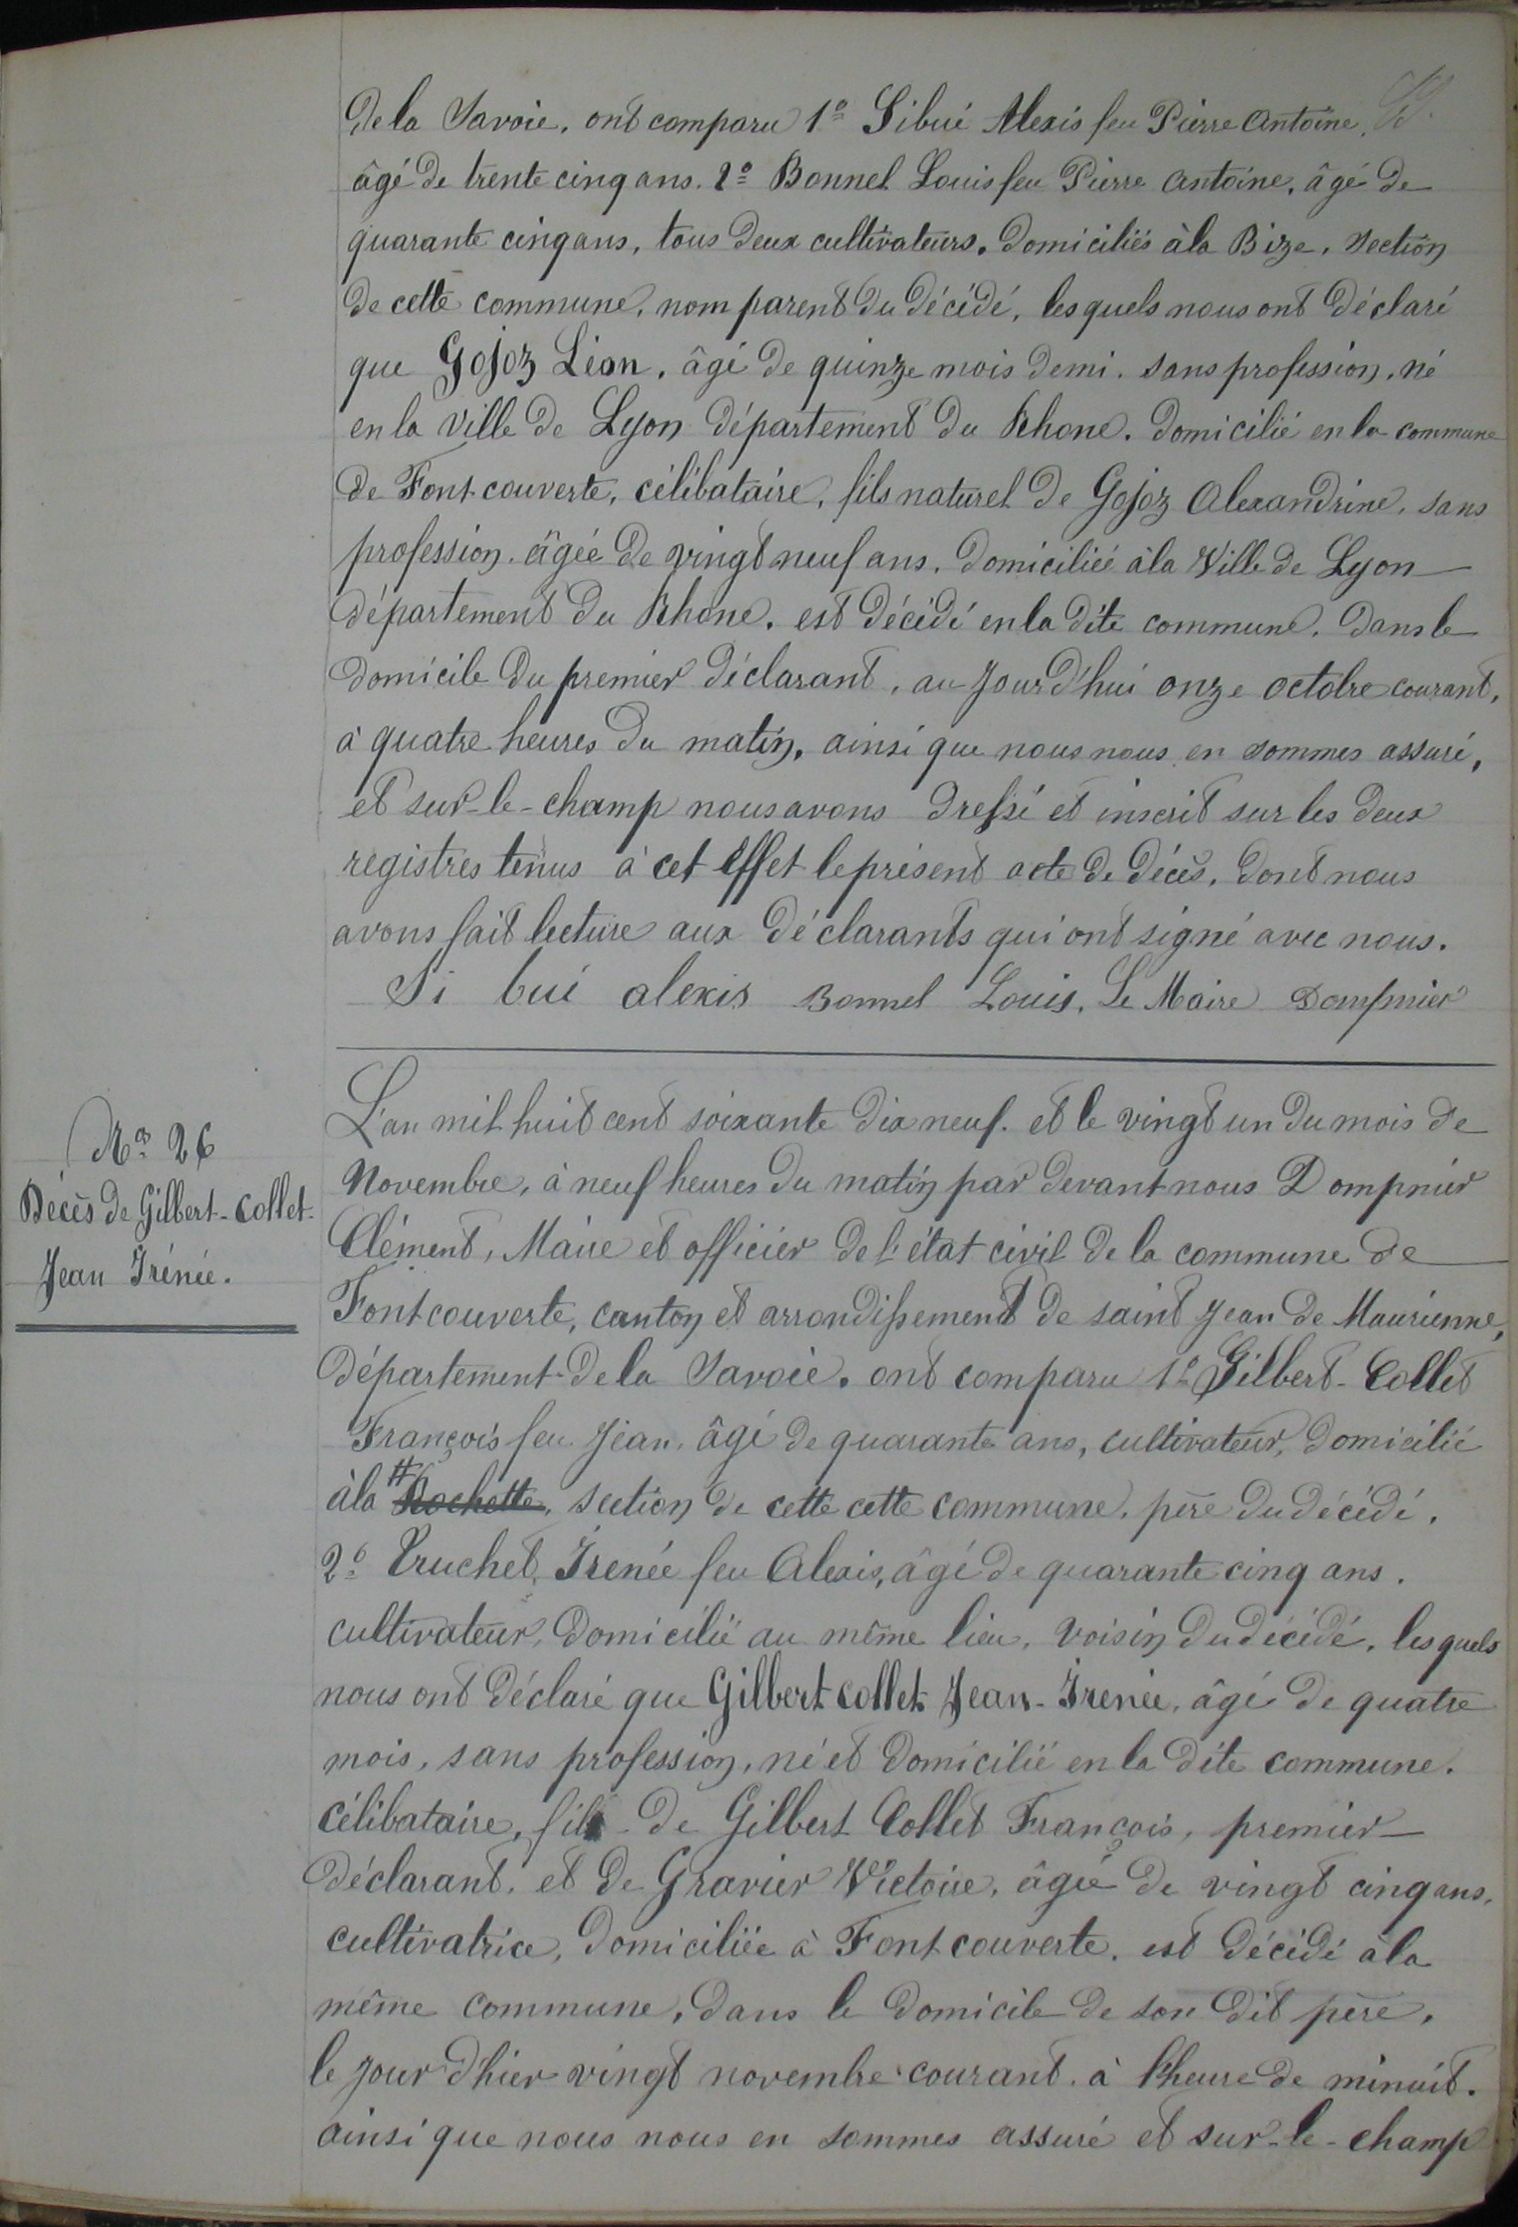 De la Savoie, ont comparu 1º Sibué Alexis feu Pierre Antoine,
âgé de trente cinq ans. 2º Bonnel Louis feu Pierre Antoine, âgé de
quarante cinq ans, tous deux cultivateurs, domiciliés à la Bize, section
de cette commune, nom parent du décédé, lesquels nous ont déclaré
que Gojoz Léon, âgé de quinze mois demi, sans profession, né
en la Ville de Lyon département du Rhone. domicilié en la commune
de Fontcouverte, célibataire, fils naturel de Gojoz Alexandrine, sans
profession, âgée de vingt neuf ans, domiciliée à la Ville de Lyon
département du Rhone, est décédé en la dite commune, dans le
domicile du premier déclarant, au jour d'hui onze octobre courant,
à quatre heures du matin, ainsi que nous nous en sommes assuré,
et sur-le-champ nous avons dressé et inscrit sur les deux
registres tenus à cet effet le présent acte de décès, dont nous
avons fait lecture aux déclarants qui ont signé avec nous.
Si bué alexis Bonnel Louis, Le Maire Dompnier
Nº 26
Décès de Gilbert-Collet
Jean Irénée.
L'an mil huit cent soixante dix neuf. et le vingt un du mois de
Novembre, à neuf heures du matin par devant nous Dompnier
Clément, Maire et officier de l'état civil de la commune de
Fontcouverte, canton et arrondissement de saint Jean de Maurienne,
département de la Savoie, ont comparu 1º Gilbert-Collet
François feu Jean, âgé de quarante ans, cultivateur, domicilié
à la # Rochette, section de cette cette commune, père du décédé,
2º Truchet Irenée feu Alexis, âgé de quarante cinq ans,
cultivateur, domicilié au même lieu, voisin du décédé, lesquels
nous ont déclaré que Gilbert Collet Jean-Irenée, âgé de quatre
mois, sans profession, né et domicilié en la dite commune,
célibataire, fils de Gilbert Collet François, premier
déclarant, et de Gravier Victoire, âgée de vingt cinq ans,
cultivatrice, domiciliée à Fontcouverte, est décédé à la
même commune, dans le domicile de son dit père,
le jour d'hier vingt novembre courant, à l'heure de minuit,
ainsi que nous nous en sommes assuré et sur-le-champ